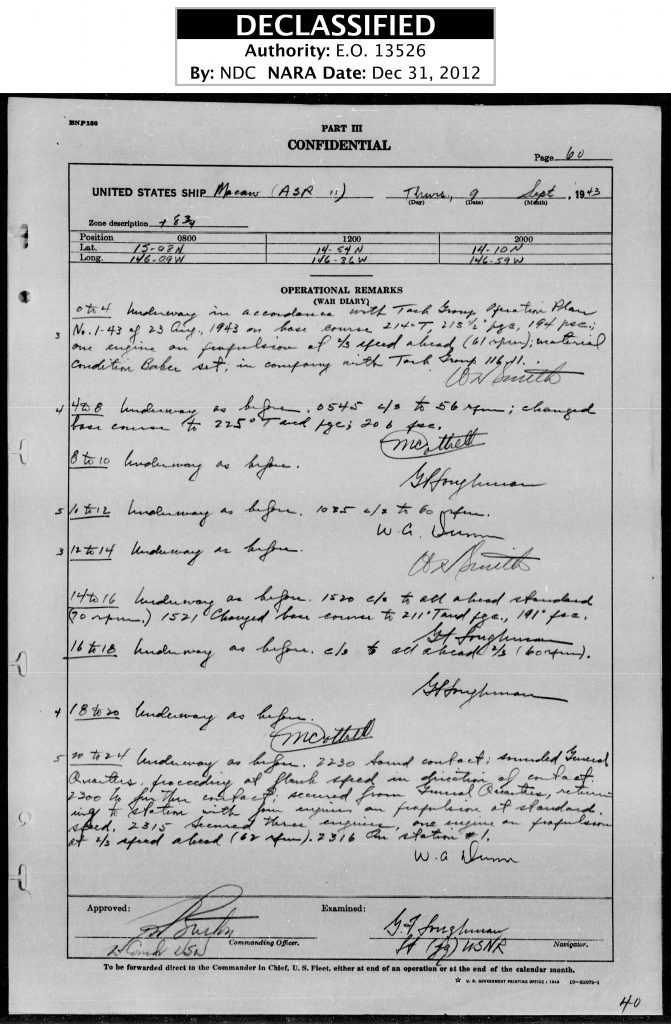 DECLASSIFIED
Authority: E.O. 13526
By: NDC NARA Date: Dec 31, 2012
BNP136
PART III
CONFIDENTIAL
Page 60
UNITED STATES SHIP Macaw (ASR 11) Thurs., 9 Sept, 1943
(Day) (Date) (Month)
Zone description
Position 0800 1200 2000
Lat. 15-08N 14-54N 14-10N
Long. 146-09W 146-36W 146-59W
OPERATIONAL REMARKS
(WAR DIARY)
0 to 4 Underway in accordance with Task Group Operation Plan
3 No. 1-43 of 23 Aug., 1943 on base course 214°T, 213½° pgc, 194 psc;
one engine on propulsion at 2/3 speed ahead (61 rpm); material
condition Baker set, in company with Task Group 116.11.
Smith
4 4 to 8 Underway as before. 0545 c/s to 56 rpm; changed
base course to 225°T and pgc; 206 psc.
McCottrell
8 to 10 Underway as before.
G F Loughman
5 10 to 12 Underway as before. 1035 c/s to 60 rpm.
W. A. Dunn
3 12 to 14 Underway as before.
Smith
14 to 16 Underway as before. 1520 c/s to all ahead standard
(70 rpm.) 1521 Changed base course to 211°T and pgc., 191° psc.
G F Loughman
16 to 18 Underway as before. c/s to all ahead 2/3 (60 rpm).
G F Loughman
4 18 to 20 Underway as before.
McCottrell
5 20 to 24 Underway as before. 2230 Sound contact; sounded General
Quarters, proceeding at flank speed in direction of contact.
2300 No further contact; secured from General Quarters, return
ing to station with four engines on propulsion at standard
speed. 2315 Secured three engines, one engine on propulsion
at 2/3 speed ahead (62 rpm). 2316 On station #1.
W. A. Dunn
Approved: Examined:
Burton G. F. Loughman
Lt Comdr USN Commanding Officer. Lt (jg) USNR Navigator.
To be forwarded direct to the Commander in Chief, U. S. Fleet, either at end of an operation or at the end of the calendar month.
☆ U. S. GOVERNMENT PRINTING OFFICE : 1943
40